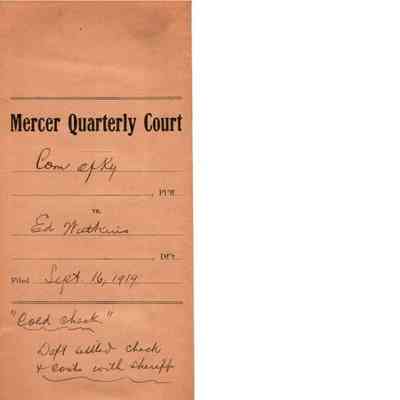 Mercer Quarterly Court
Com of Ky
, Pl'ff
vs.
Ed Watkins
, Df't
Filed Sept 16, 1919
"Cold check"
Deft settled check
& costs with sheriff